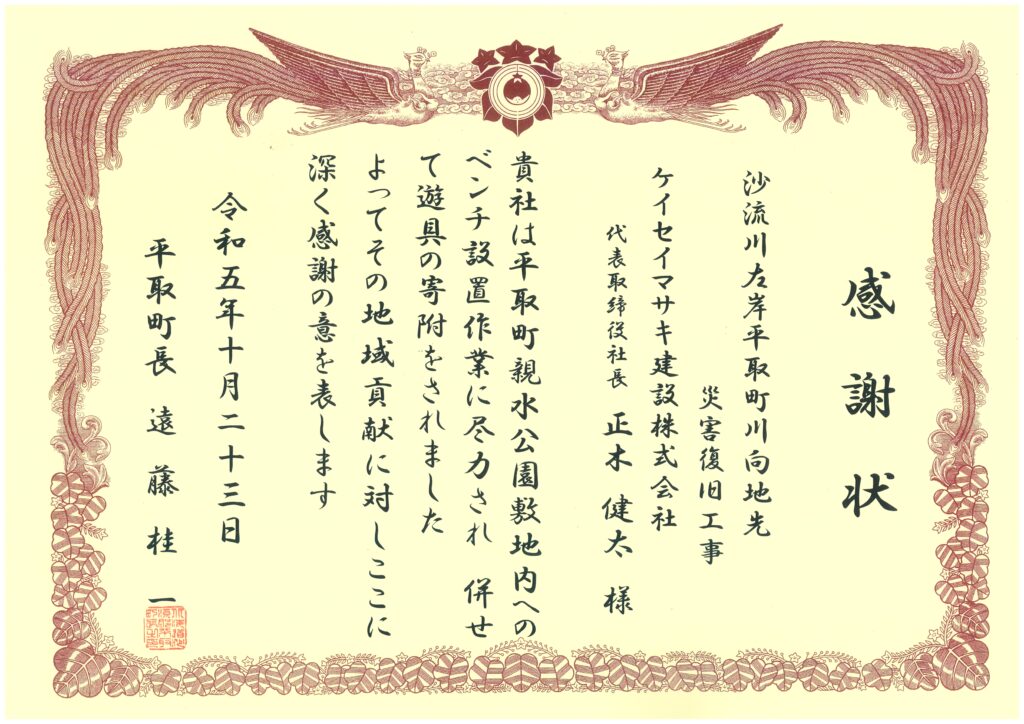 感謝状
沙流川左岸平取町川向地先
災害復旧工事
ケイセイマサキ建設株式会社
代表取締役社長 正木健太 様
貴社は平取町親水公園敷地内への
ベンチ設置作業に尽力され 併せ
て遊具の寄附をされました
よってその地域貢献に対しここに
深く感謝の意を表します
令和五年十月二十三日
平取町長 遠藤桂一